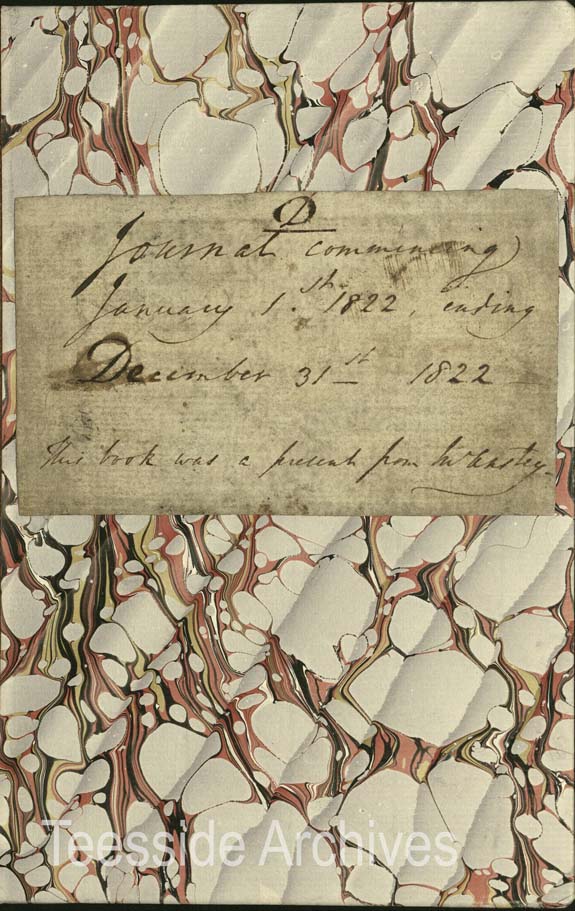 D
Journal commencing
January 1.st 1822, ending
December 31st 1822
This book was a present from Mr Anstey.
Teesside Archives